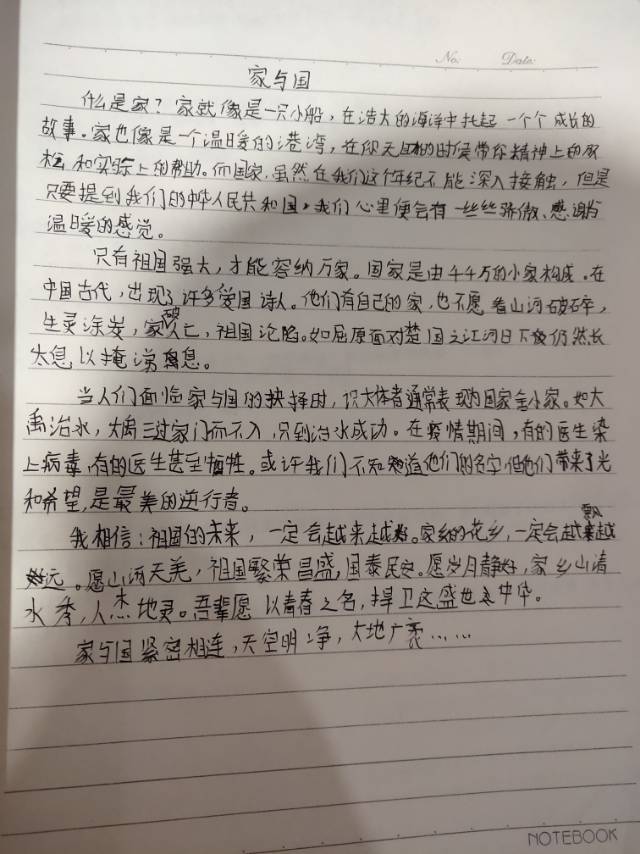 No.  Date:
家与国
什么是家？家就像是一只小船，在浩大的海洋中托起一个个成长的
故事。家也像是一个温暖的港湾，在你无助的时候带你精神上的放
松和实际上的帮助。而国家，虽然在我们这个年纪不能深入接触，但是
只要提到我们的中华人民共和国，我们心里便会有一丝丝骄傲、感谢与
温暖的感觉。
只有祖国强大，才能容纳万家。国家是由千千万的小家构成。在
中国古代，出现了许多爱国诗人。他们有自己的家，也不愿看山河破碎，
生灵涂炭，家破人亡，祖国沦陷。如屈原面对楚国之江河日下般仍然长
太息以掩涕息。
当人们面临家与国的抉择时，识大体者通常表现为国家舍小家。如大
禹治水，大禹三过家门而不入，只到治水成功。在疫情期间，有的医生染
上病毒，有的医生甚至牺牲。或许我们不知道他们的名字，但他们带来了光
和希望，是最美的逆行者。
我相信：祖国的未来，一定会越来越好。家乡的花香，一定会越飘越
远。愿山河无恙，祖国繁荣昌盛，国泰民安。愿岁月静好，家乡山清
水秀，人杰地灵。吾辈愿以青春之名，捍卫这盛世中华。
家与国紧密相连，天空明净，大地广袤……
NOTEBOOK